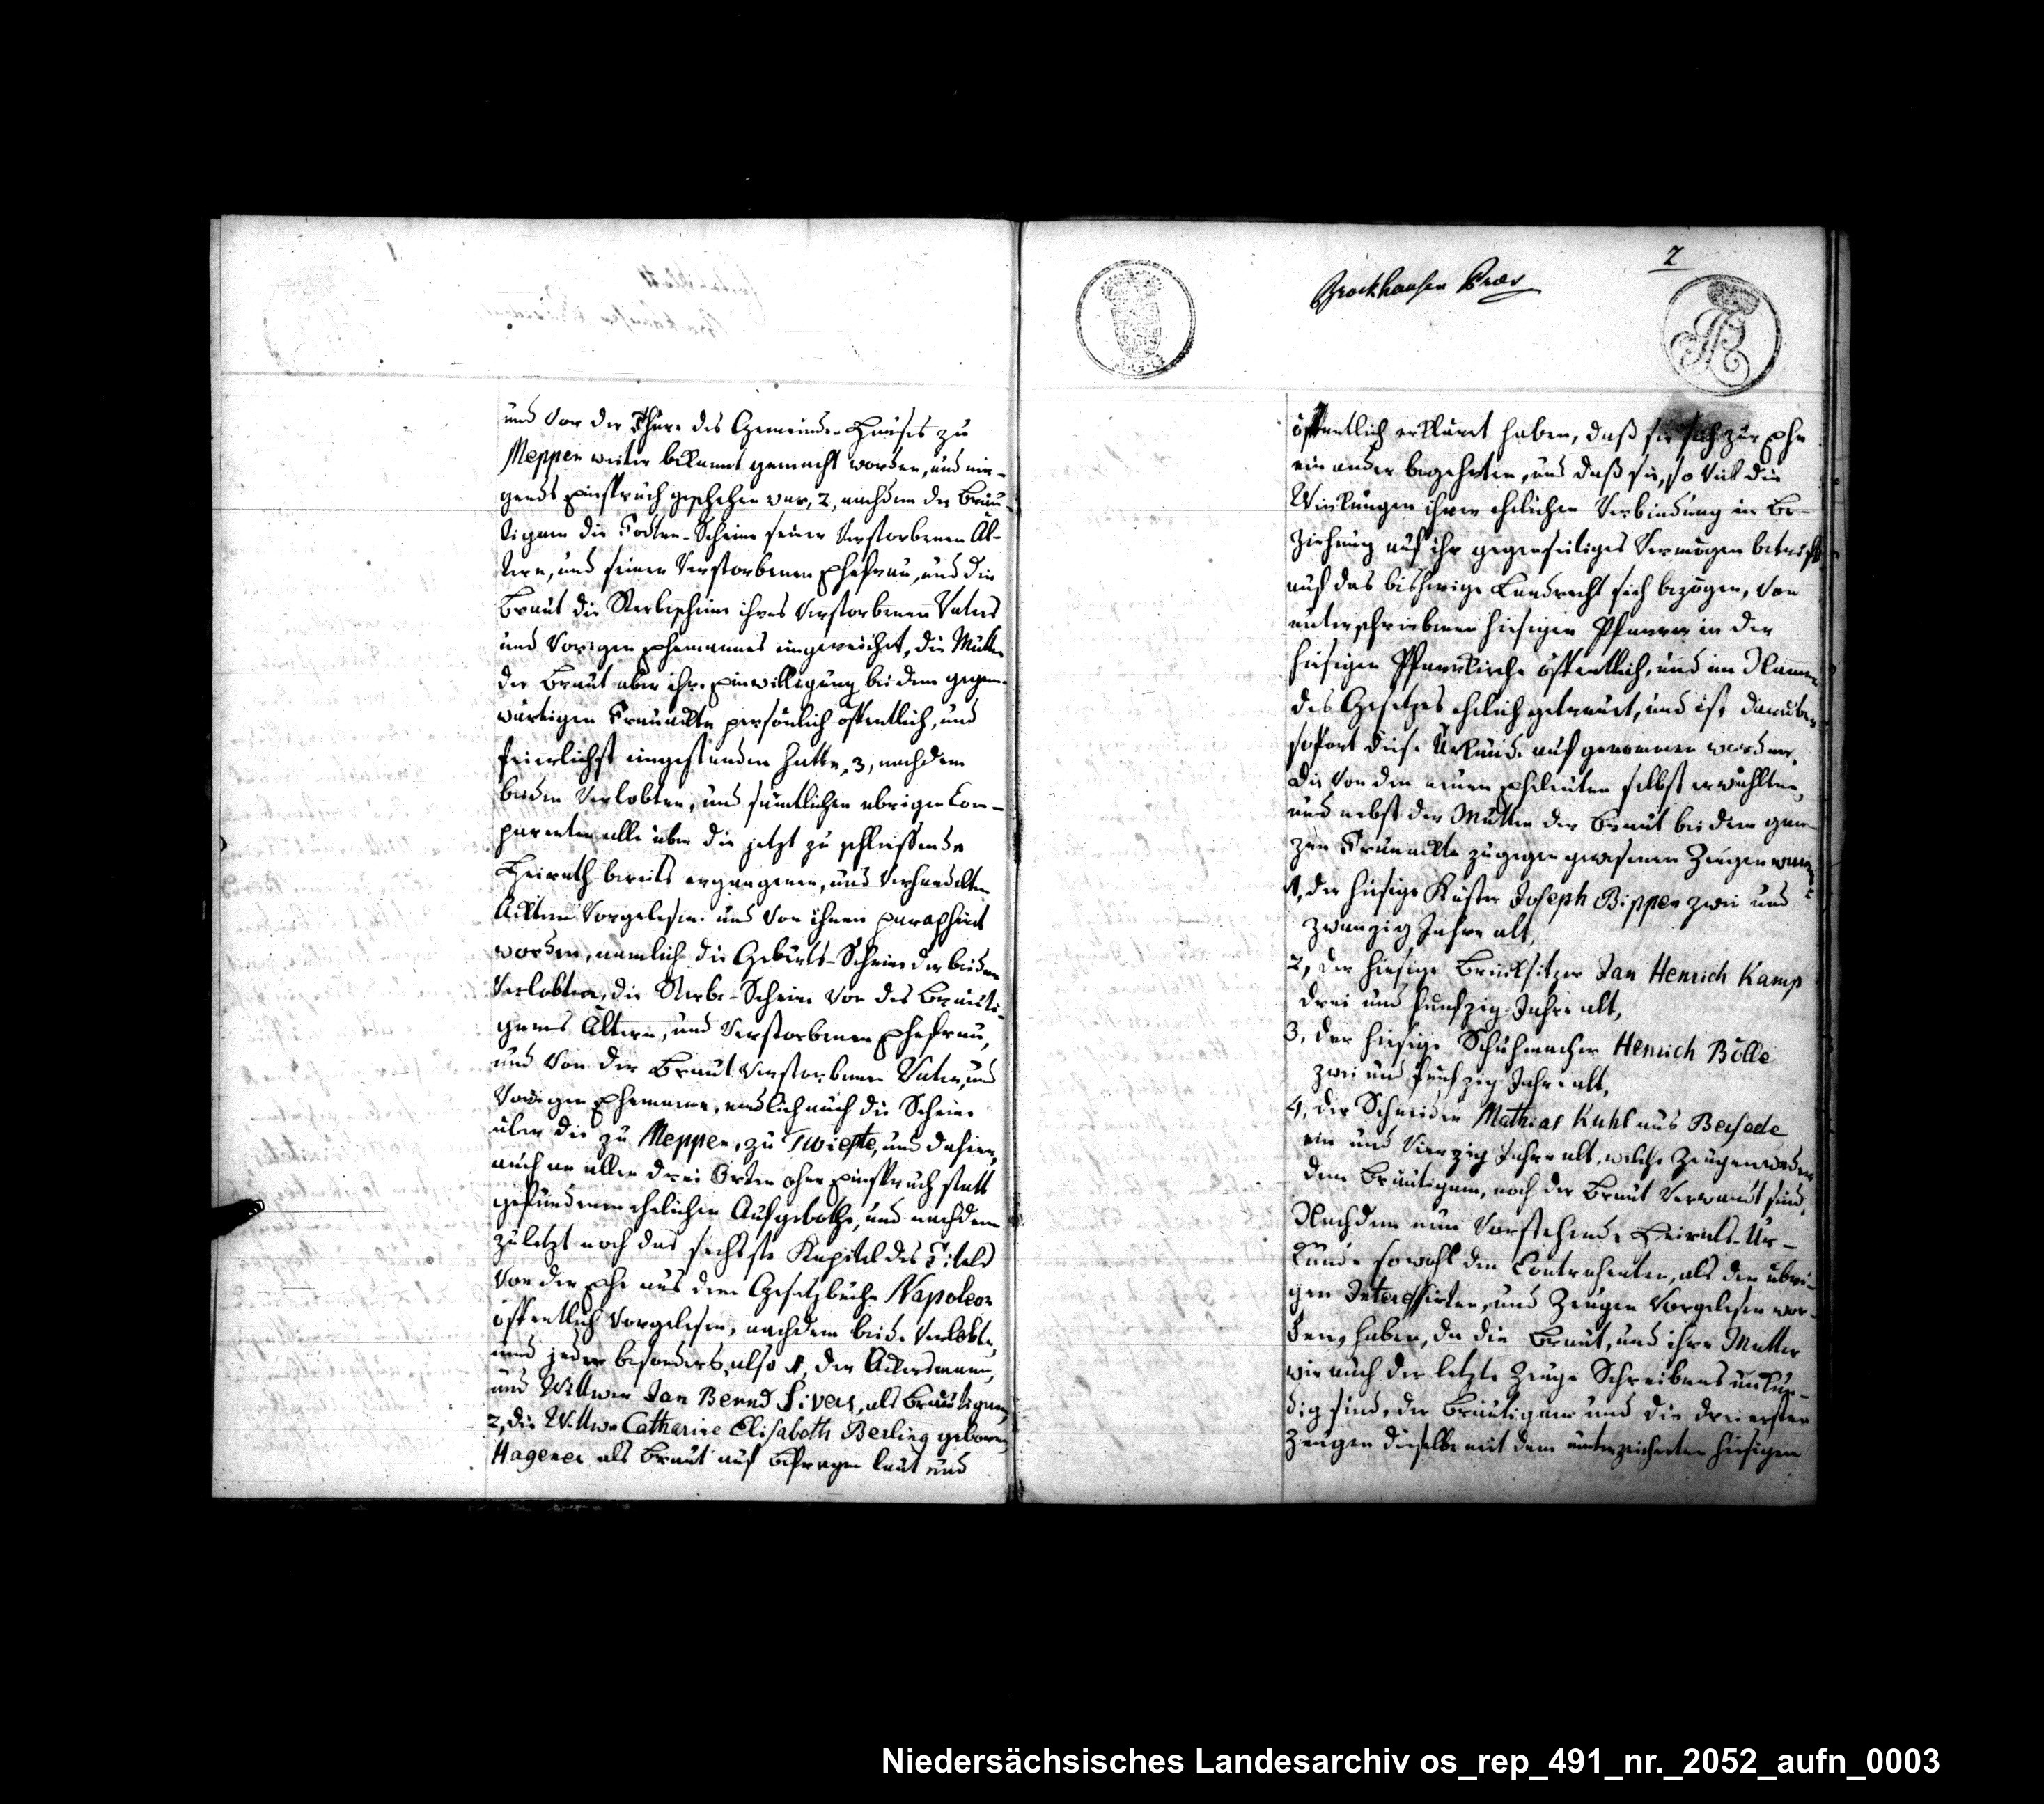 und vor der Thüre des Gemeinde-Hauses zu
Meppen weiter bekannt gemacht worden, und nir-
gends Einspruch geschehen war, 2, nachdem der Bräu-
tigam die Todten-Scheine seiner verstorbenen Äl-
tern, und seiner verstorbenen Ehefrau, und die
Braut die Sterbescheine ihres verstorbenen Vaters
und vorigen Ehemannes eingereichet, die Mutter
der Braut aber ihre Einwilligung bei dem gegen-
wärtigen Trauackte persönlich öffentlich, und
feierlichst eingestanden hatte, 3, nachdem
beiden Verlobten, und sämtlichen übrigen Com-
parenten alle über die jetzt zu schliessende
Heirath bereits ergangenen, und verhandelten
Ackten vorgelesen und von ihnen paraphirt
worden, nemlich die Geburts-Scheine der beiden
Verlobten, die Sterbe-Scheine von des Bräuti-
gams Ältern, und verstorbenen Ehefrau,
und von der Braut verstorbenen Vater, und
vorigen Ehemanne, endlich auch die Scheine
über die zu Meppen, zu Twieste, und dahier,
auch an allen drei Orten ohne Einspruch statt
gefundenen ehelichen Aufgebothe, und nachdem
zuletzt noch das sechsste Kapitel des Titels
von der Ehe aus dem Gesetzbuche Napoleon
öffentlich vorgelesen, nachdem beide Verlobte,
und jeder besonders, also 1, der Ackersmann,
und Wittwer Jan Bernd Sivers, als Bräutigam,
2, die Wittwe Catharine Elisabeth Berling geborne
Hagener als Braut auf Befragen laut und
2
Brockhausen Praes
öffentlich erkläret haben, daß sie sich zur Ehe
ein ander begehrten, und daß sie, so viel die
Wirkungen ihrer ehelichen Verbindung in Be-
ziehung auf ihr gegenseitiges Vermögen betrift
auf das bisherige Landrecht sich bezögen, von
unterschriebenen hiesigen Pfarrer in der
hiesigen Pfarrkirche öffentlich, und im Namen
des Gesetzes ehelich getrauet, und ist darüber
sofort diese Urkunde aufgenommen worden.
Die von den neuen Eheleuten selbst erwählten,
und nebst der Mutter der Braut bei dem gan-
zen Trauackte zugegen gewesenen Zeugen waren
1, der hiesige Küster Joseph Bippen zwei und
zwanzig Jahre alt,
2, der hiesige Brinksitzer Jan Henrich Kamp
drei und funfzig Jahre alt,
3, der hiesige Schuhmacher Henrich Bölle
zwei und funfzig Jahre alt,
4, der Schneider Mathias Kuhl aus Bersede
ein und vierzig Jahre alt, welche Zeugen weder
dem Bräutigam, noch der Braut verwandt sind.
Nachdem nun vorstehende Heirats-Ur-
kunde sowohl den Contrahenten, als den übri-
gen Interessirten, und Zeugen vorgelesen wor-
den, haben, da die Braut, und ihre Mutter
wie auch der letzte Zeuge Schreibens unkun-
dig sind, der Bräutigam und die drei ersten
Zeugen dieselbe mit dem unterzeichneten hiesigen
Niedersächsisches Landesarchiv os_rep_491_nr._2052_aufn_0003